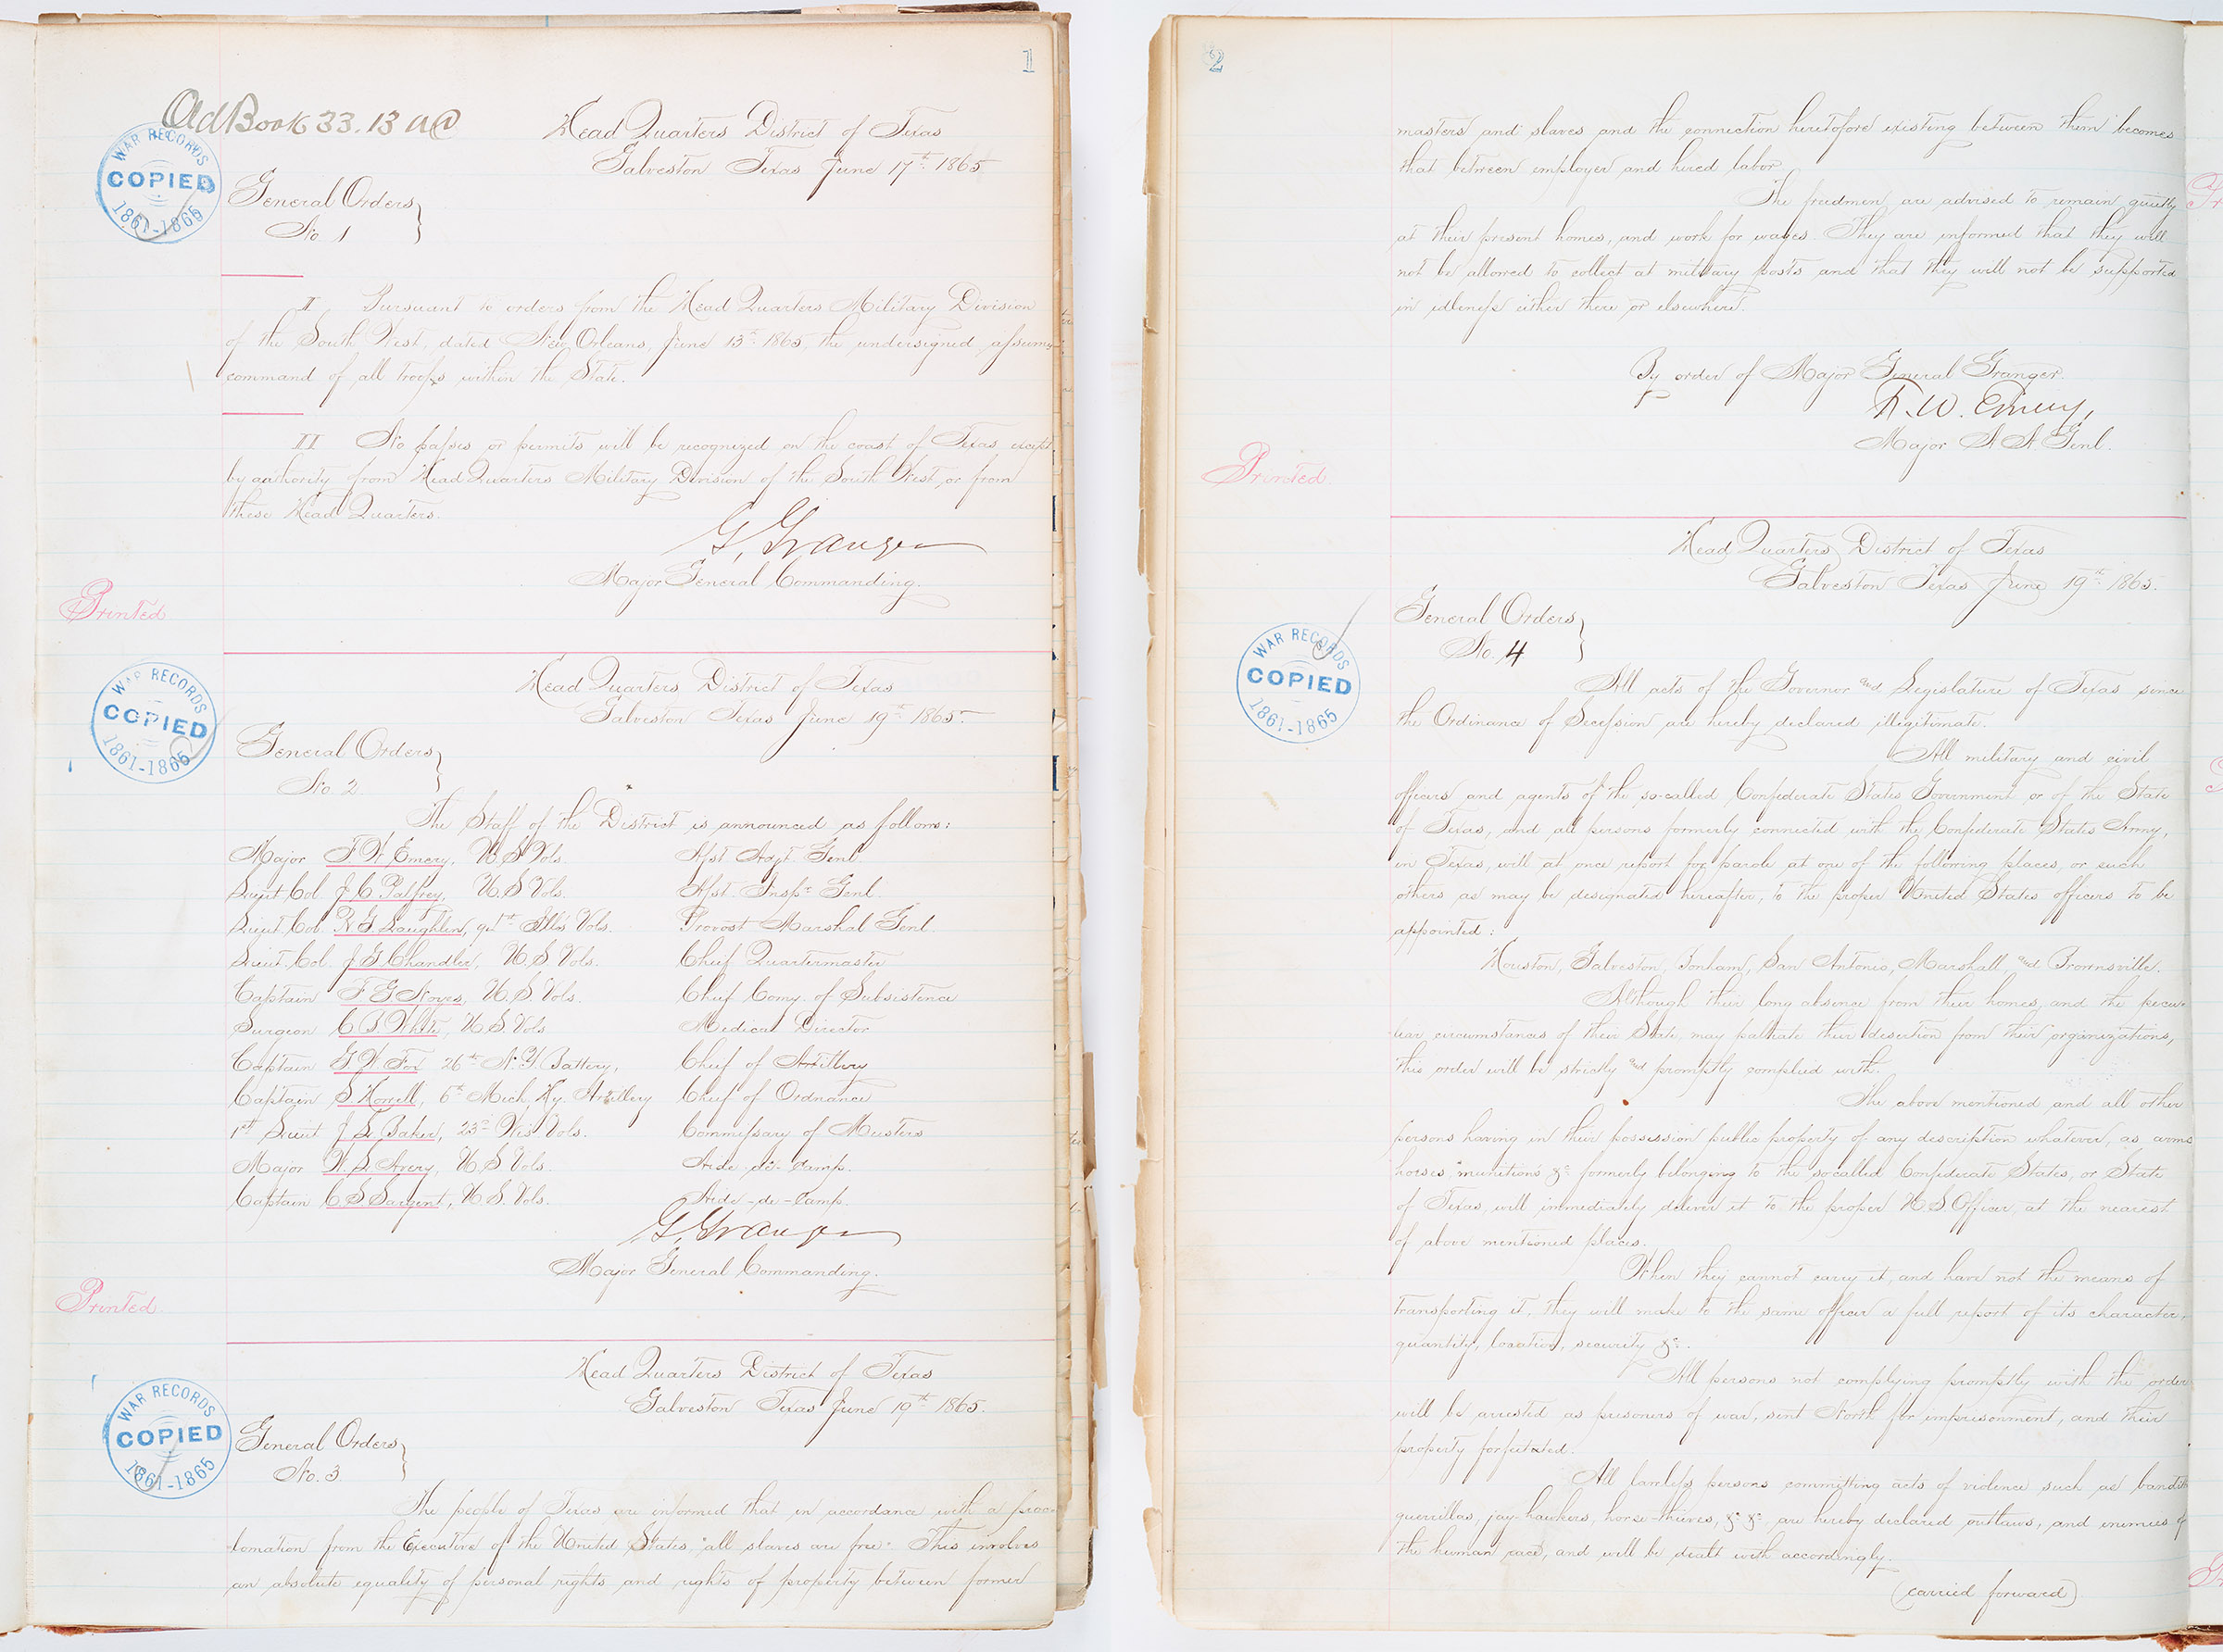 1
Old Book 33. 13 A@
WAR RECORDS
COPIED
1861-1865
Head Quarters District of Texas
Galveston Texas June 17th 1865
General Orders
No. 1
I Pursuant to orders from the Head Quarters Military Division
of the South West, dated New Orleans, June 13th 1865, the undersigned assumes
command of all troops within the State.
II No passes or permits will be recognized on the coast of Texas except
by authority from Head Quarters Military Division of the South West, or from
these Head Quarters.
G. Granger
Major General Commanding.
Printed.
Head Quarters District of Texas
Galveston Texas June 19th 1865.
WAR RECORDS
COPIED
1861-1865
General Orders
No. 2
The Staff of the District is announced as follows:
Major F W Emery, U. S. Vols. Asst Adjt. Genl.
Lieut Col J. C Palfrey, U. S Vols. Asst Inspr Genl.
Lieut. Col. R G. Laughlin, 94th Ills Vols. Provost Marshal Genl.
Lieut. Col. J G Chandler, U. S Vols. Chief Quartermaster
Captain F G Noyes, U. S. Vols. Chief Comy. of Subsistence
Surgeon C B. White, U S. Vols Medical Director
Captain G. W Fox 26th N. Y. Battery, Chief of Artillery
Captain S. Howell, 6th Mich. Hy. Artillery Chief of Ordnance
1st Lieut J. L. Baker, 23d Wis. Vols. Commissary of Musters
Major W. L. Avery, U. S Vols. Aide-de-Camp.
Captain C S Sargent, U S. Vols. Aide-de-Camp.
G. Granger
Major General Commanding.
Printed.
Head Quarters District of Texas
Galveston Texas June 19th 1865.
WAR RECORDS
COPIED
1861-1865
General Orders
No. 3
The people of Texas are informed that in accordance with a proc-
lamation from the Executive of the United States, "all slaves are free." This involves
an absolute equality of personal rights and rights of property between former
2
masters and slaves and the connection heretofore existing between them becomes
that between employer and hired labor.
The freedmen are advised to remain quietly
at their present homes, and work for wages. They are informed that they will
not be allowed to collect at military posts and that they will not be supported
in idleness either there or elsewhere.
By order of Major General Granger
F. W. Emery,
Major A. A. Genl.
Printed.
Head Quarters District of Texas
Galveston Texas June 19th 1865.
General Orders
No. 4
WAR RECORDS
COPIED
1861-1865
All acts of the Governor and Legislature of Texas since
the Ordinance of Secession are hereby declared illegitimate.
All military and civil
officers and agents of the so-called Confederate States Government or of the State
of Texas, and all persons formerly connected with the Confederate States Army,
in Texas, will at once report for parole at one of the following places, or such
others as may be designated hereafter, to the proper United States officers to be
appointed:
Houston, Galveston, Bonham, San Antonio, Marshall, and Brownsville.
Although their long absence from their homes, and the pecu-
liar circumstances of their State, may palliate their desertion from their organizations,
this order will be strictly and promptly complied with.
The above mentioned and all other
persons having in their possession public property of any description whatever, as arms
horses, munitions &c formerly belonging to the so called Confederate States, or State
of Texas, will immediately deliver it to the proper U. S. Officer, at the nearest
of above mentioned places.
When they cannot carry it, and have not the means of
transporting it, they will make to the same officer a full report of its character,
quantity, location, security &c.
All persons not complying promptly with this order
will be arrested as prisoners of war, sent North for imprisonment, and their
property forfeited.
All lawless persons committing acts of violence such as banditti
guerrillas, jay-hawkers, horse-thieves, &c &c, are hereby declared outlaws, and enemies of
the human race, and will be dealt with accordingly.
(carried forward)